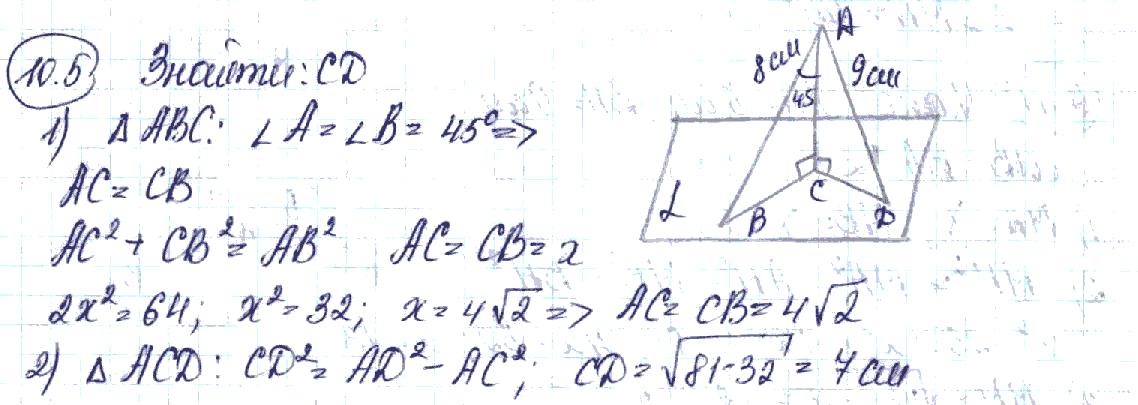 10.5 Знайти: CD
1) △ ABC: ∠A = ∠B = 45° =>
AC = CB
AC² + CB² = AB² AC = CB = x
2x² = 64; x² = 32; x = 4√2 => AC = CB = 4√2
2) △ ACD: CD² = AD² - AC²; CD = √81-32 = 7 см
A
8 см
9 см
45
C
B
D
α